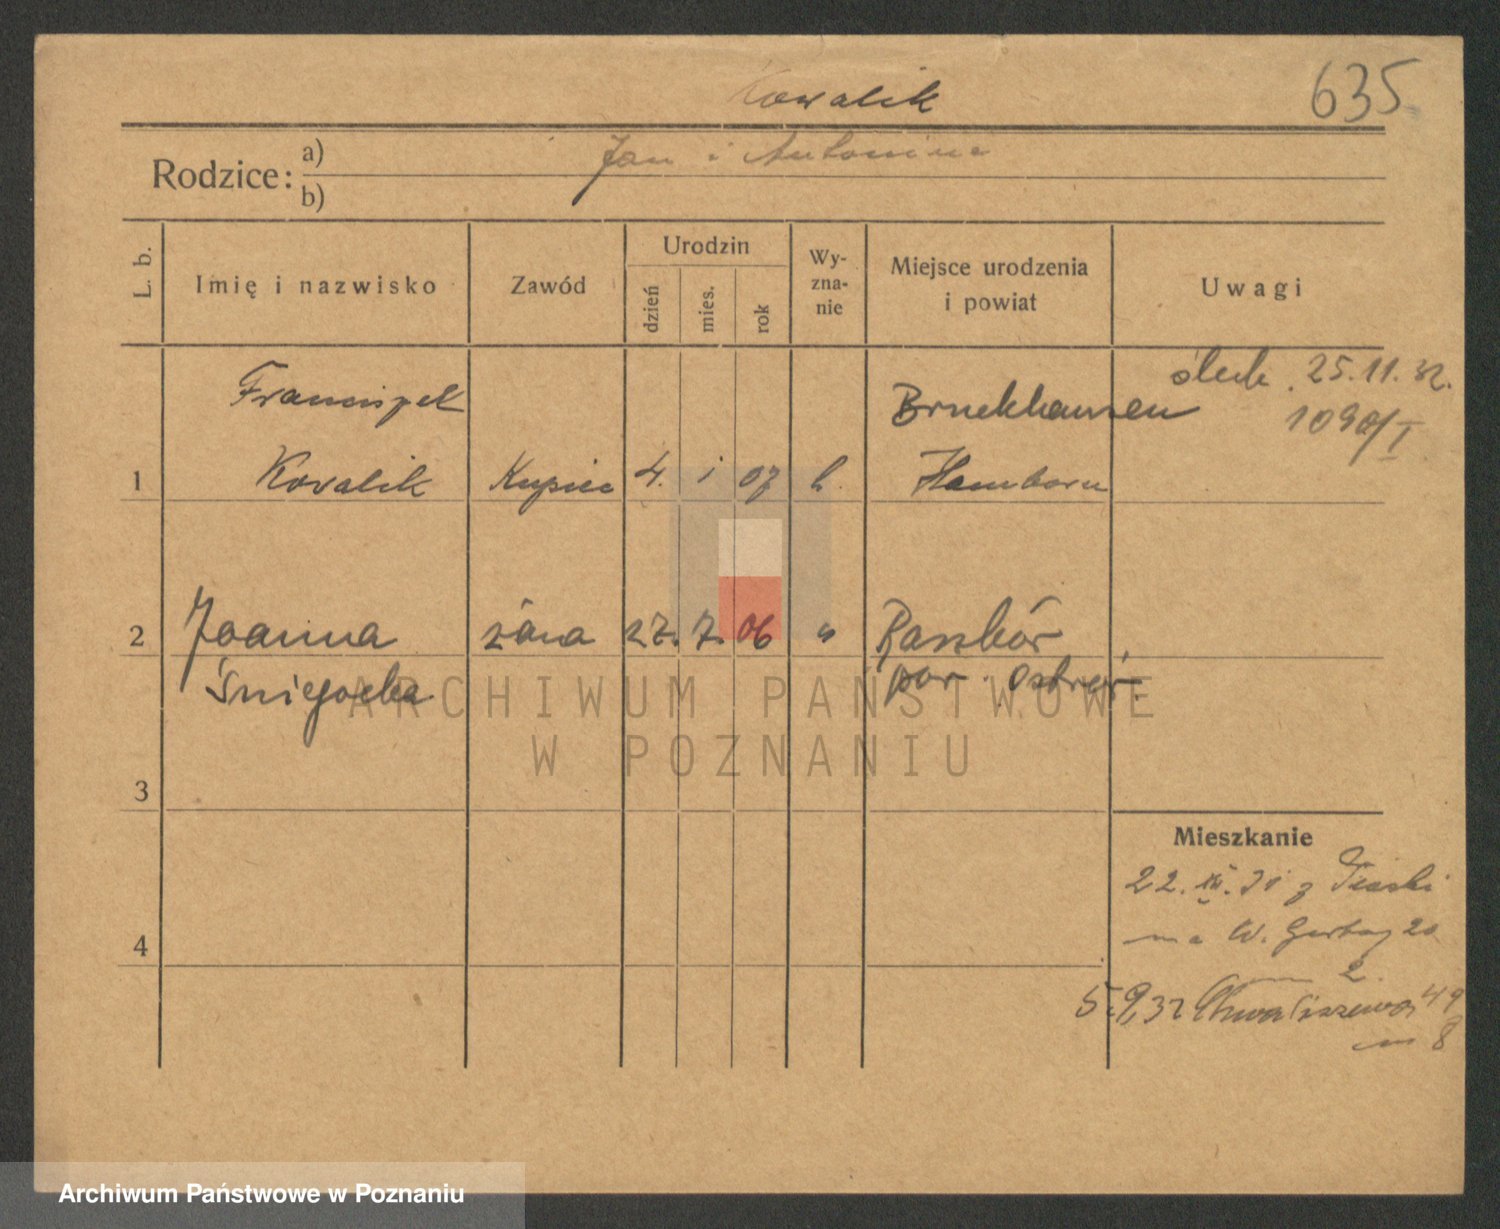 Kowalik
635
Rodzice:
a) Jan i Antonina
b)
L. b.
Imię i nazwisko
Zawód
Urodzin
dzień
mies.
rok
Wy-
zna-
nie
Miejsce urodzenia
i powiat
Uwagi
Franciszek
Bruckhausen
25.11.32.
1090/I
1 Kowalik Kupiec 4. i 07 Hamborn
2 Joanna żona 27. 7. 06 " Raszków
Śniegocka pow. Ostrów.
3
4
Mieszkanie
22. XII. 31 z Piaski
na W. Garbary 20
m 2.
5.9.32 Chwaliszewo 49
m 8
ARCHIWUM PAŃSTWOWE
W POZNANIU
Archiwum Państwowe w Poznaniu